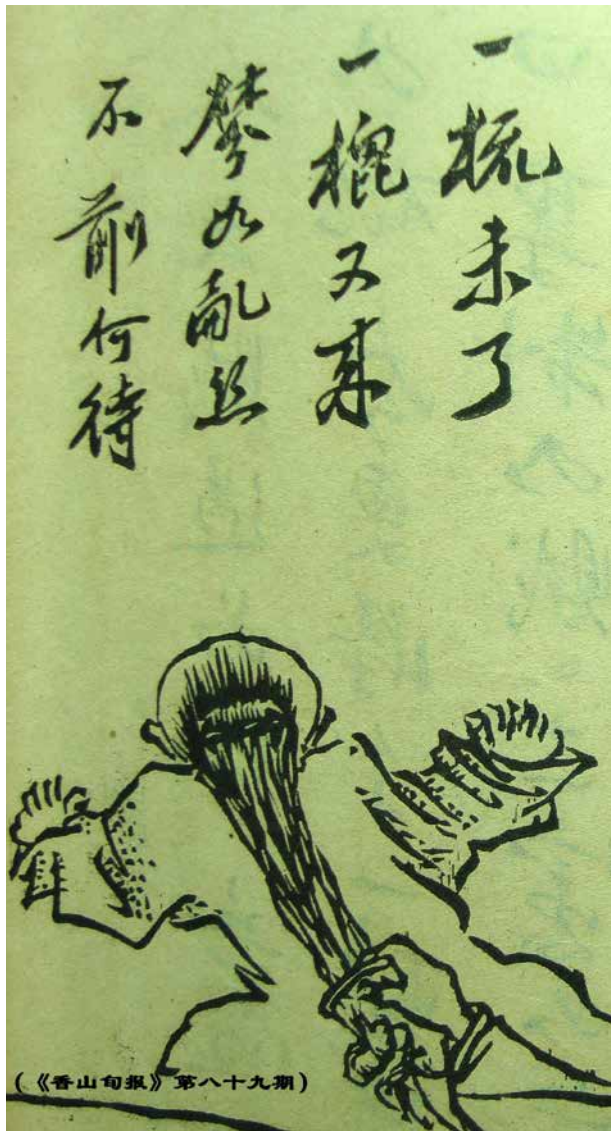 一梳未了
一又來
棼如亂絲
不剪何待
(《香山旬报》第八十九期)